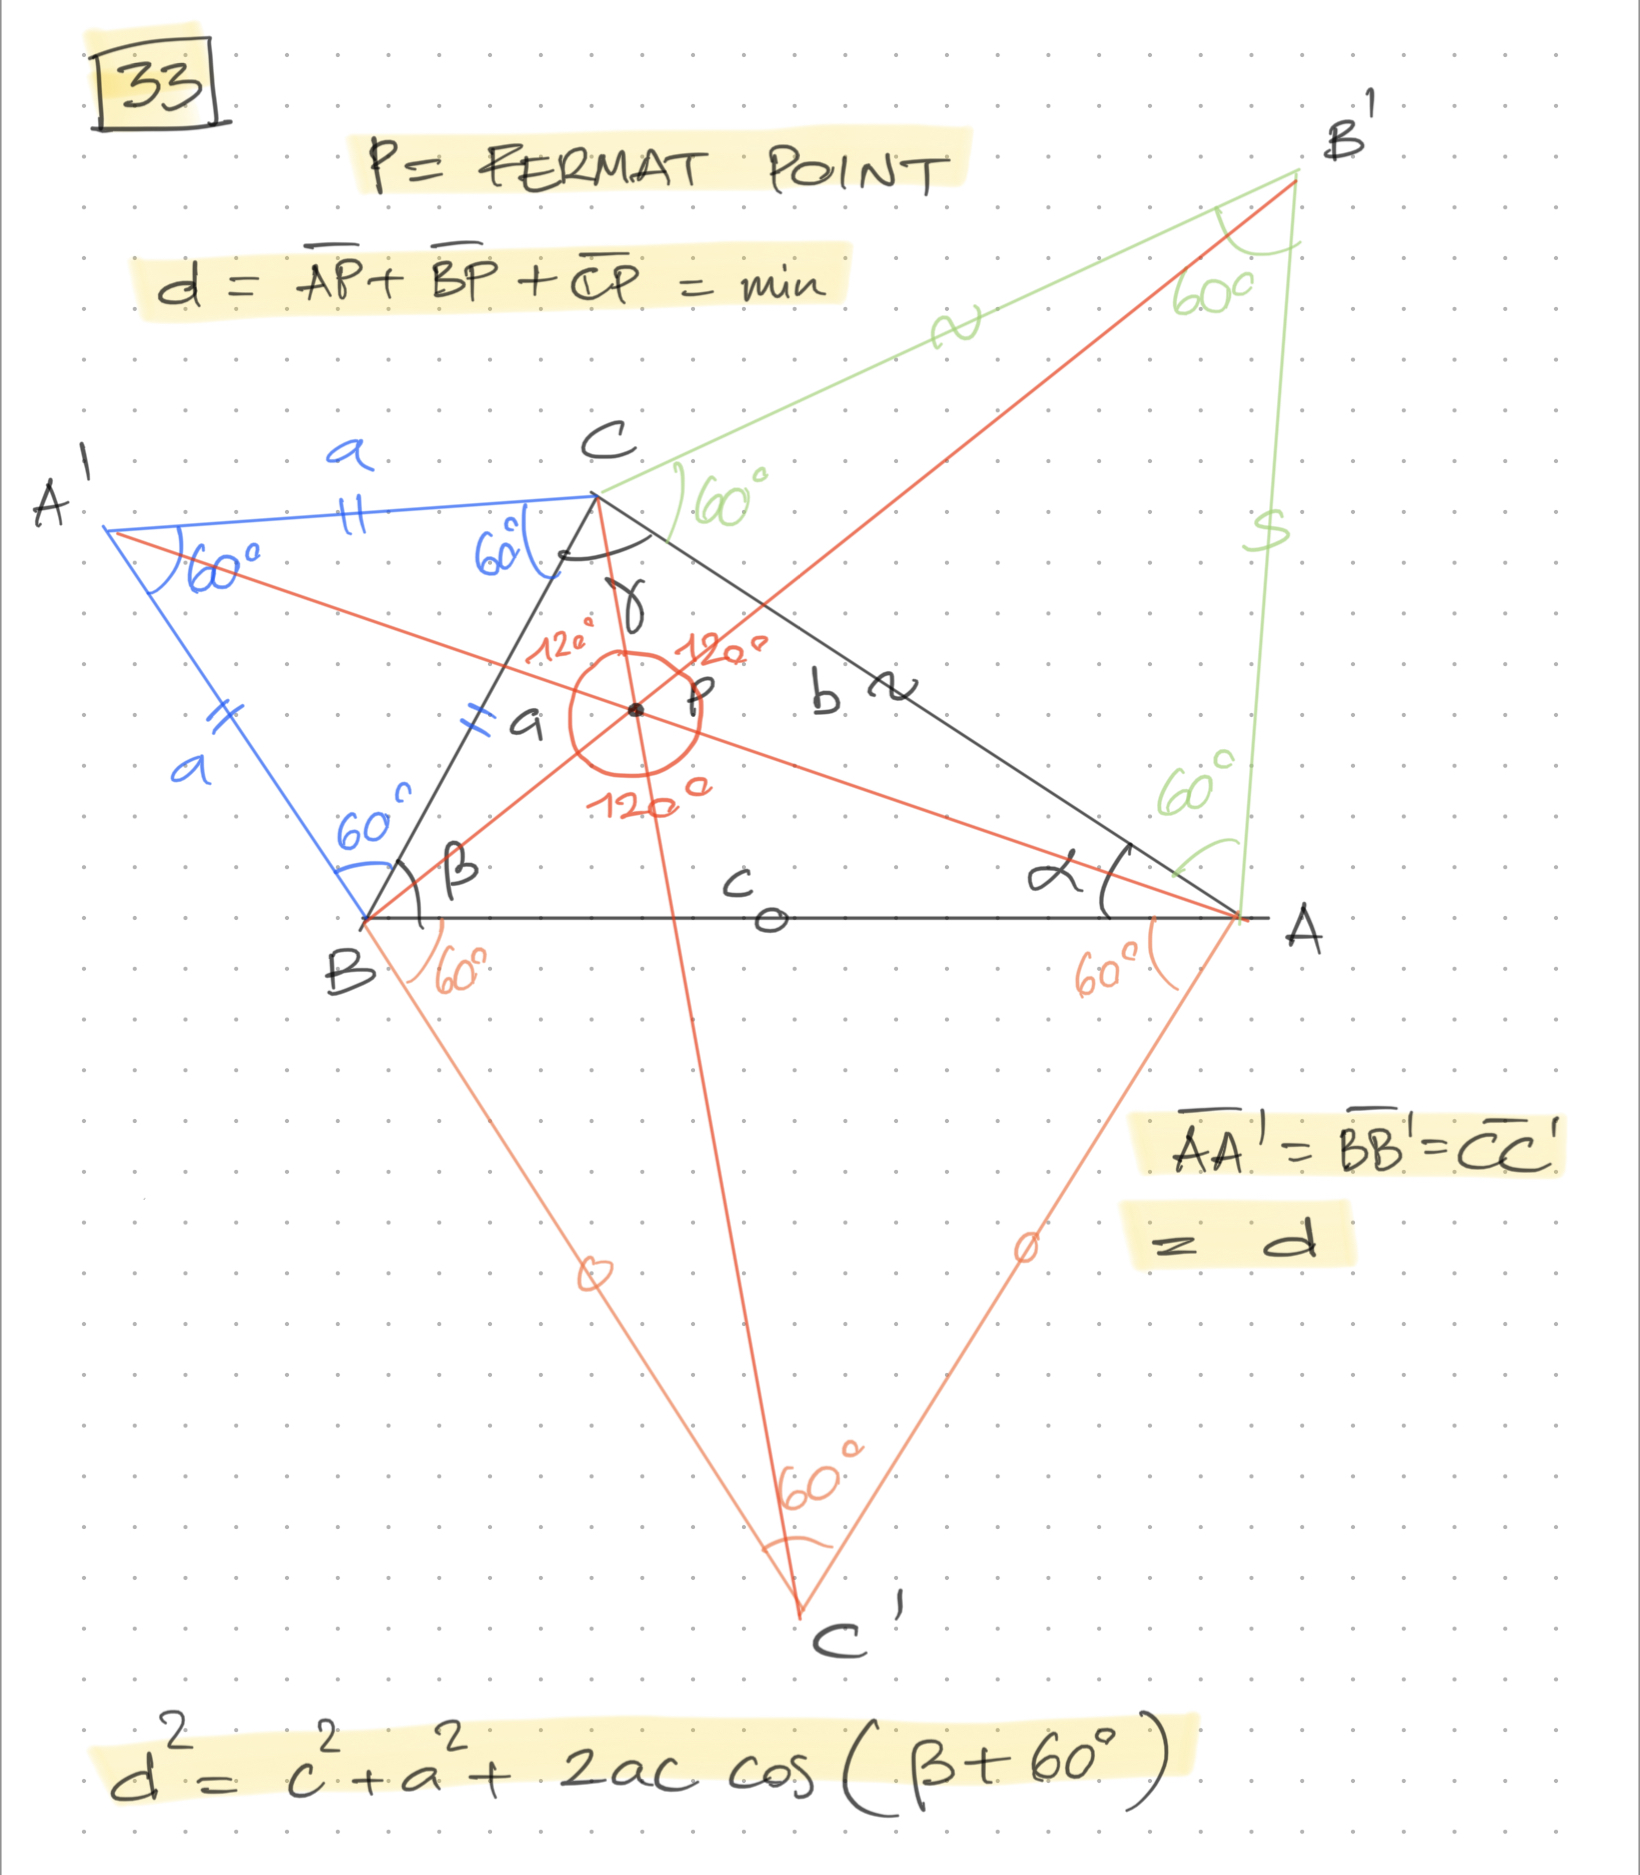 33
P = FERMAT POINT
d = AP + BP + CP = min
B'
60°
C
a
A'
60°
60°
60°
γ
120°
120°
P
b
a
a
120°
60°
60°
β
c
α
B
A
60°
60°
AA' = BB' = CC'
= d
60°
C'
d² = c² + a² + 2ac cos (β + 60°)